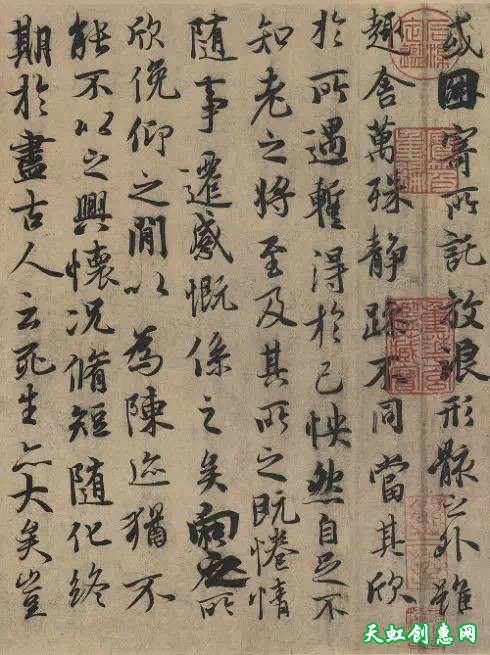 或因寄所託放浪形骸之外雖
趣舍萬殊静躁不同當其欣
於所遇蹔得於己怏然自足不
知老之將至及其所之既惓情
隨事遷感慨係之矣向之所
欣俛仰之閒以為陳迹猶不
能不以之興懷況脩短隨化終
期於盡古人云死生亦大矣豈
天虹创惠网